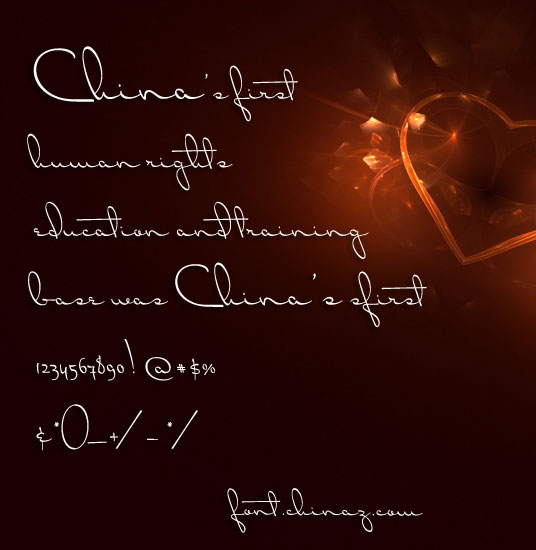 China's first
human rights
education andtraining
base was China's sfirst
1234567890! @#$%
&*()_+/ - */
font.chinaz.com